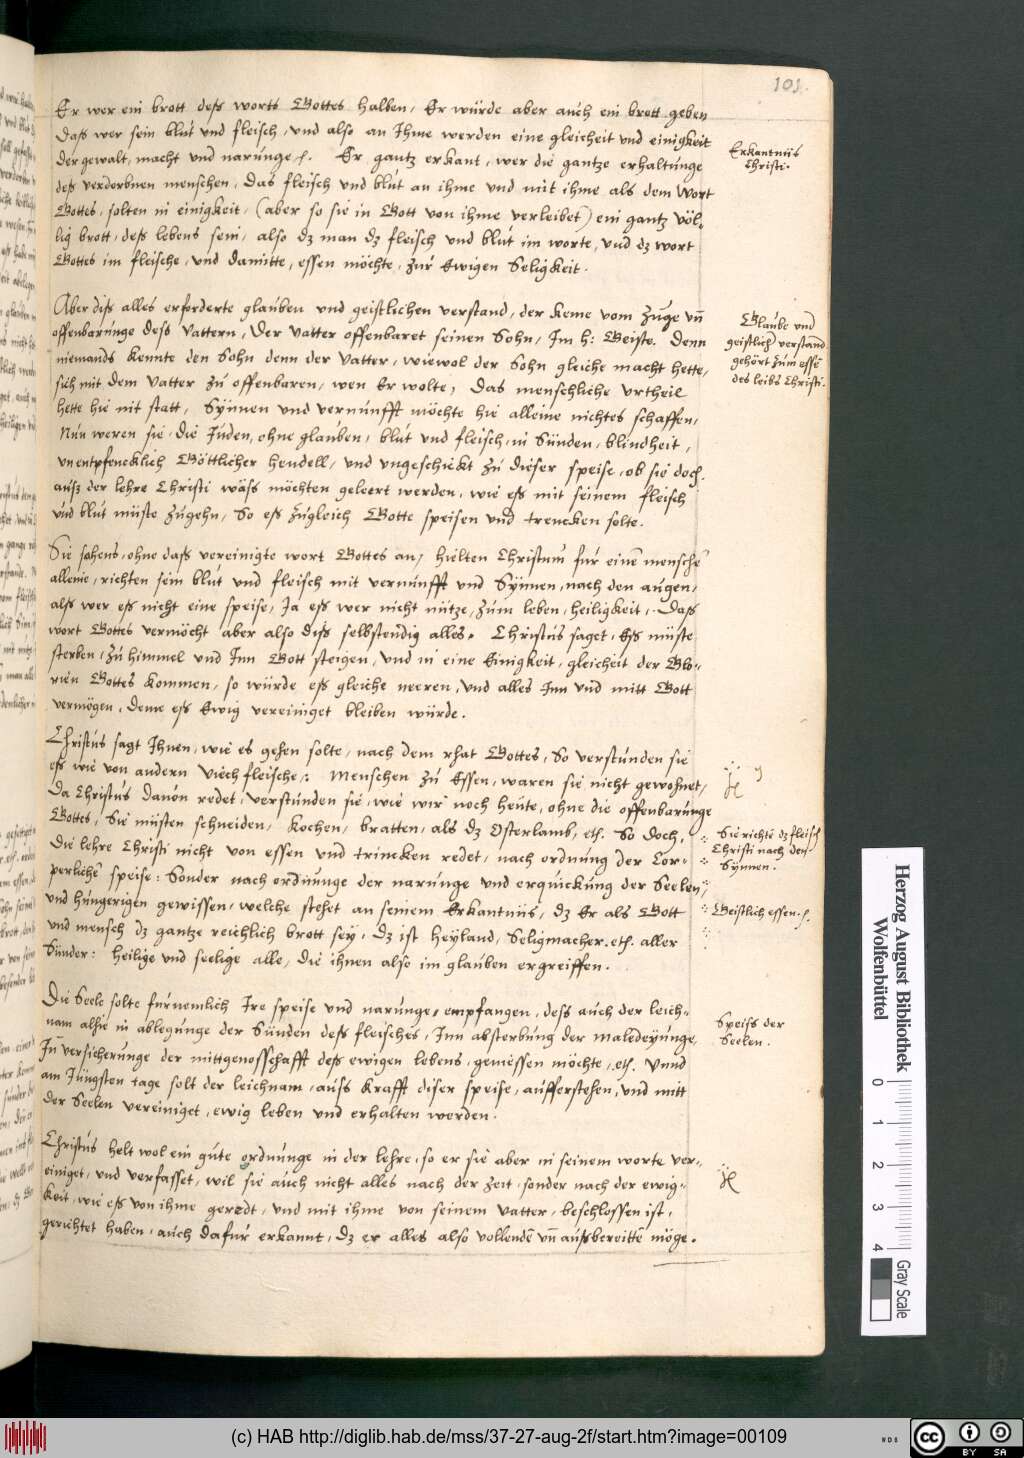 101.
Er wer ein brott deß worts Gottes halben, Er würde aber auch ein brott geben
Daß wer sein blut und fleisch, und also an Ihme werden eine gleicheit und einigkeit
der gewalt, macht und narunge /. Er gantz erkant, wer die gantze erhaltunge
deß verderbnen menschen, Das fleisch und blut an ihme und mit ihme als dem Wort
Gottes, solten in einigkeit, (aber so sie in Gott von ihme verleibet) ein gantz völ-
lig brott, deß lebens sein, also dz man dz fleisch und blut im worte, und dz wort
Gottes im fleische, und damitte, essen möchte, zur Ewigen Seligkeit.
Erkantniis
Christi.
Aber diß alles erforderte glauben und geistlichen verstand, der keme vom zuge uñ
offenbarunge deß Vattern, Der Vatter offenbaret seinen Sohn, Im h: Geiste. Denn
niemands kennte den Sohn denn der Vatter, wiewol der Sohn gleiche macht hette,
sich mit dem Vatter zu offenbaren, wen Er wolte, Das menschliche Urtheil
hette hie mit statt, Synnen und vernunfft möchte hie alleine nichtes schaffen,
Nun weren sie, die Juden, ohne glauben, blut und fleisch, in Sünden, blindheit,
unentpfencklich Göttlicher hendell, und ungeschickt zu dieser speise, ob sie doch
auß der lehre Christi wäß möchten geleert werden, wie eß mit seinem fleisch
und blut müste zugehn, So eß zugleich Gotte speisen und trencken solte.
Glaube und
geistlicher verstand
gehört zum essẽ
des leibs Christi.
Sie sahens, ohne daß vereinigte wort Gottes an, hielten Christum für einẽ menschẽ
alleine, richten sein blut und fleisch mit vernunfft und Synnen, nach den augen,
alß wer eß nicht eine speise, Ja eß wer nicht nütze, zum leben, heiligkeit, Daß
wort Gottes vermöcht aber also diß selbstendig alles. Christus saget, Eß müste
sterben, zu himmel und Inn Gott steigen, und in eine Einigkeit, gleicheit der Glo-
rien Gottes kommen, so würde eß gleiche neeren, und alles Inn und mitt Gott
vermögen, deme eß Ewig vereiniget bleiben würde.
Christus sagt Ihnen, wie es gehen solte, nach dem rhat Gottes, So verstunden sie
eß wie von andern Viechfleische,: Menschen zu Essen, waren sie nicht gewohnet,
Da Christus davon redet, verstunden sie, wie wir noch heute, ohne die offenbarunge
Gottes, Sie müsten schneiden, kochen, bratten, als dz Osterlamb, etc. So doch,
die lehre Christi nicht von essen und trincken redet, nach ordnung der Cor-
perlichẽ speise: Sonder nach ordnunge der narunge und erquickung der Seelen,
und hungerigen gewissen, welche stehet an seinem Erkantniis, dz Er als Gott
und mensch dz gantze reichlich brott sey, Dz ist Heyland, Seligmacher. etc. aller
Sünder: heilige und seelige alle, die ihnen also im glauben ergreiffen.
Sie richtẽ dz fleisch
Christi nach den
Synnen.
Geistlich essen.
Die Seele solte fürnemlich Ire speise und narunge, empfangen, deß auch der leich-
nam alhie in ablegunge der Sünden deß fleisches, Inn absterbung der maledeyunge,
In versicherunge der mittgenosschafft deß ewigen lebens, geniessen möchte, etc. Unnd
am Jüngsten tage solt der leichnam, auß krafft diser speise, aufferstehen, und mitt
der Seelen vereiniget, ewig leben und erhalten werden.
Speiß der
Seelen.
Christus helt wol ein gute ordnunge in der lehre, so er sie aber in seinem worte ver-
einiget, und verfasset, wil sie auch nicht alles nach der zeit, sonder nach der ewig-
keit, wie eß von ihme geredt, und mit ihme von seinem Vatter, beschlossen ist,
gerichtet haben, auch dafür erkannt, dz er alles also vollendẽ uñ außbereittẽ möge.
Herzog August Bibliothek
Wolfenbüttel
0 1 2 3 4
Gray Scale
(c) HAB http://diglib.hab.de/mss/37-27-aug-2f/start.htm?image=00109
WDB
cc BY SA